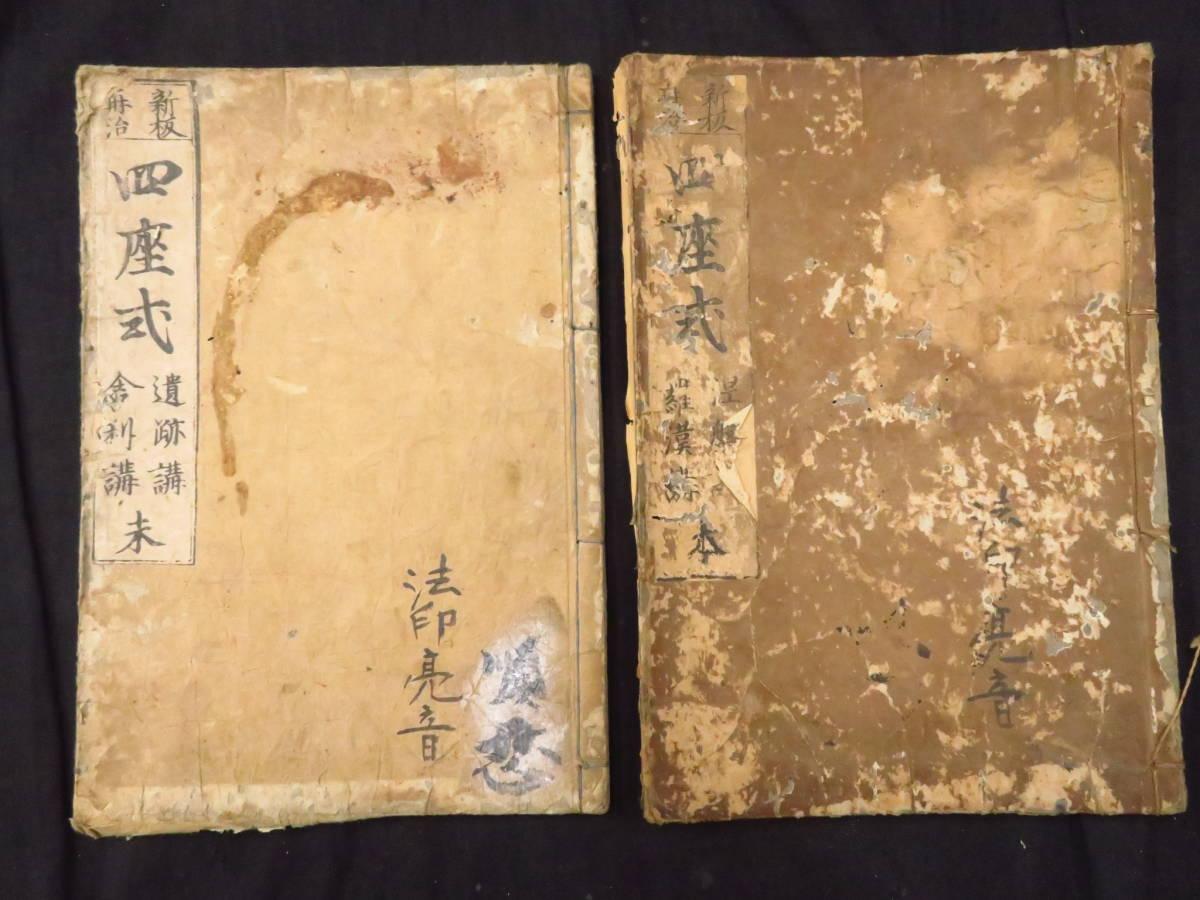 新板
再治
四座式
遺跡講
舎利講
末
法印
亮音
新板
再治
四座式
涅槃
羅漢講
本
法印
亮音